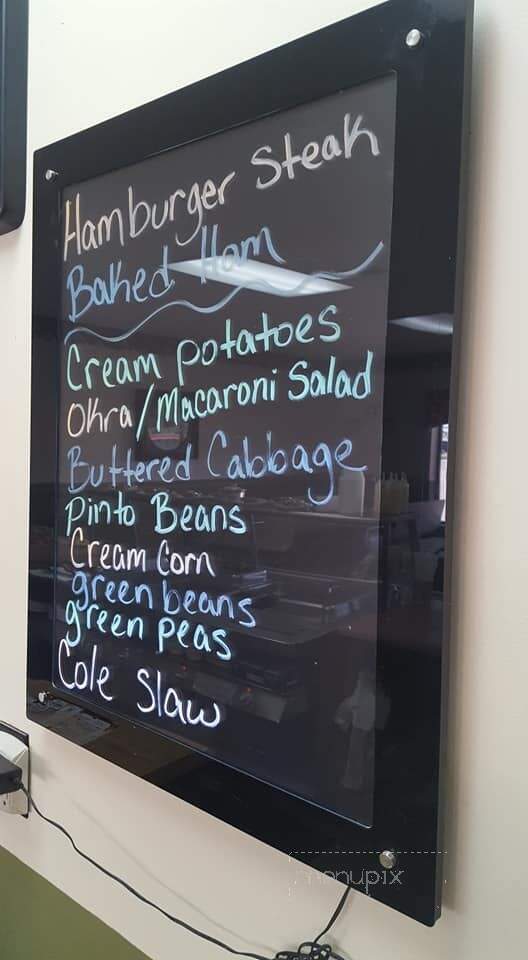 Hamburger Steak
Baked Ham
Cream potatoes
Okra/Macaroni Salad
Buttered Cabbage
Pinto Beans
Cream Corn
green beans
green peas
Cole Slaw
menupix